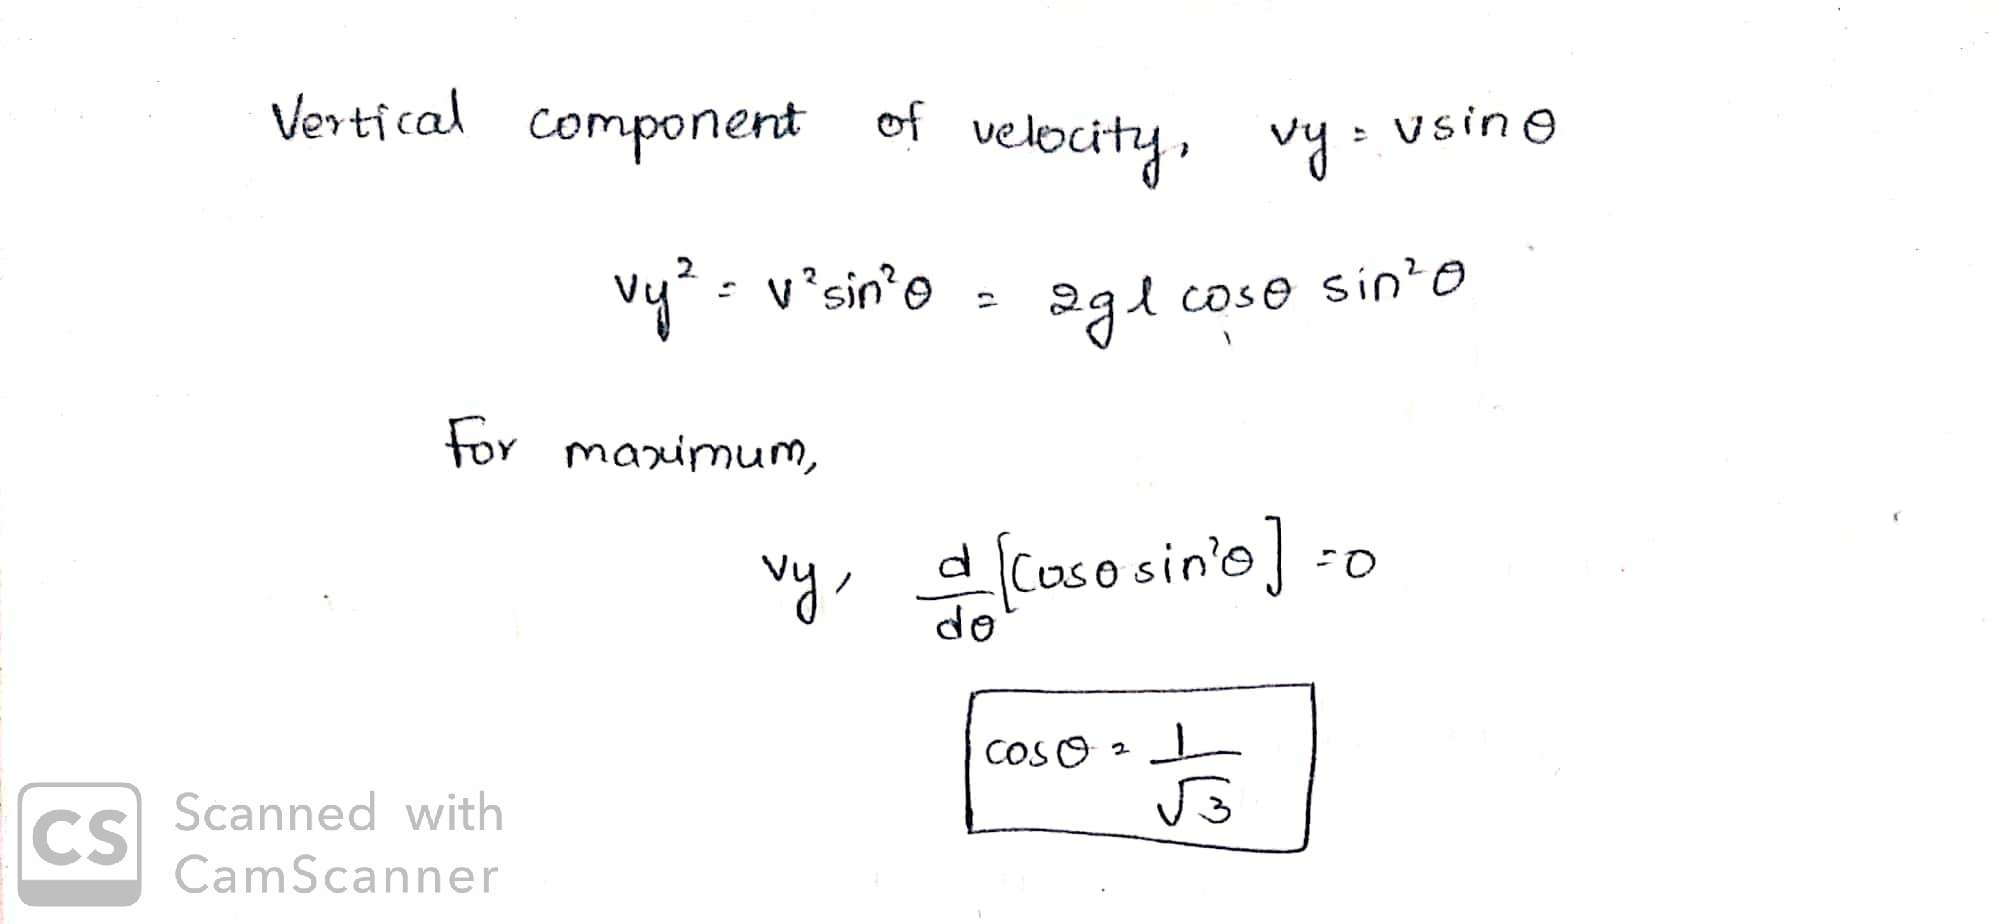 Vertical component of velocity, vy = vsinθ
vy² = v²sin²θ = 2gl cosθ sin²θ
For maximum,
vy, d/dθ [cosθ sin²θ] = 0
cosθ = 1/√3
CS Scanned with
CamScanner